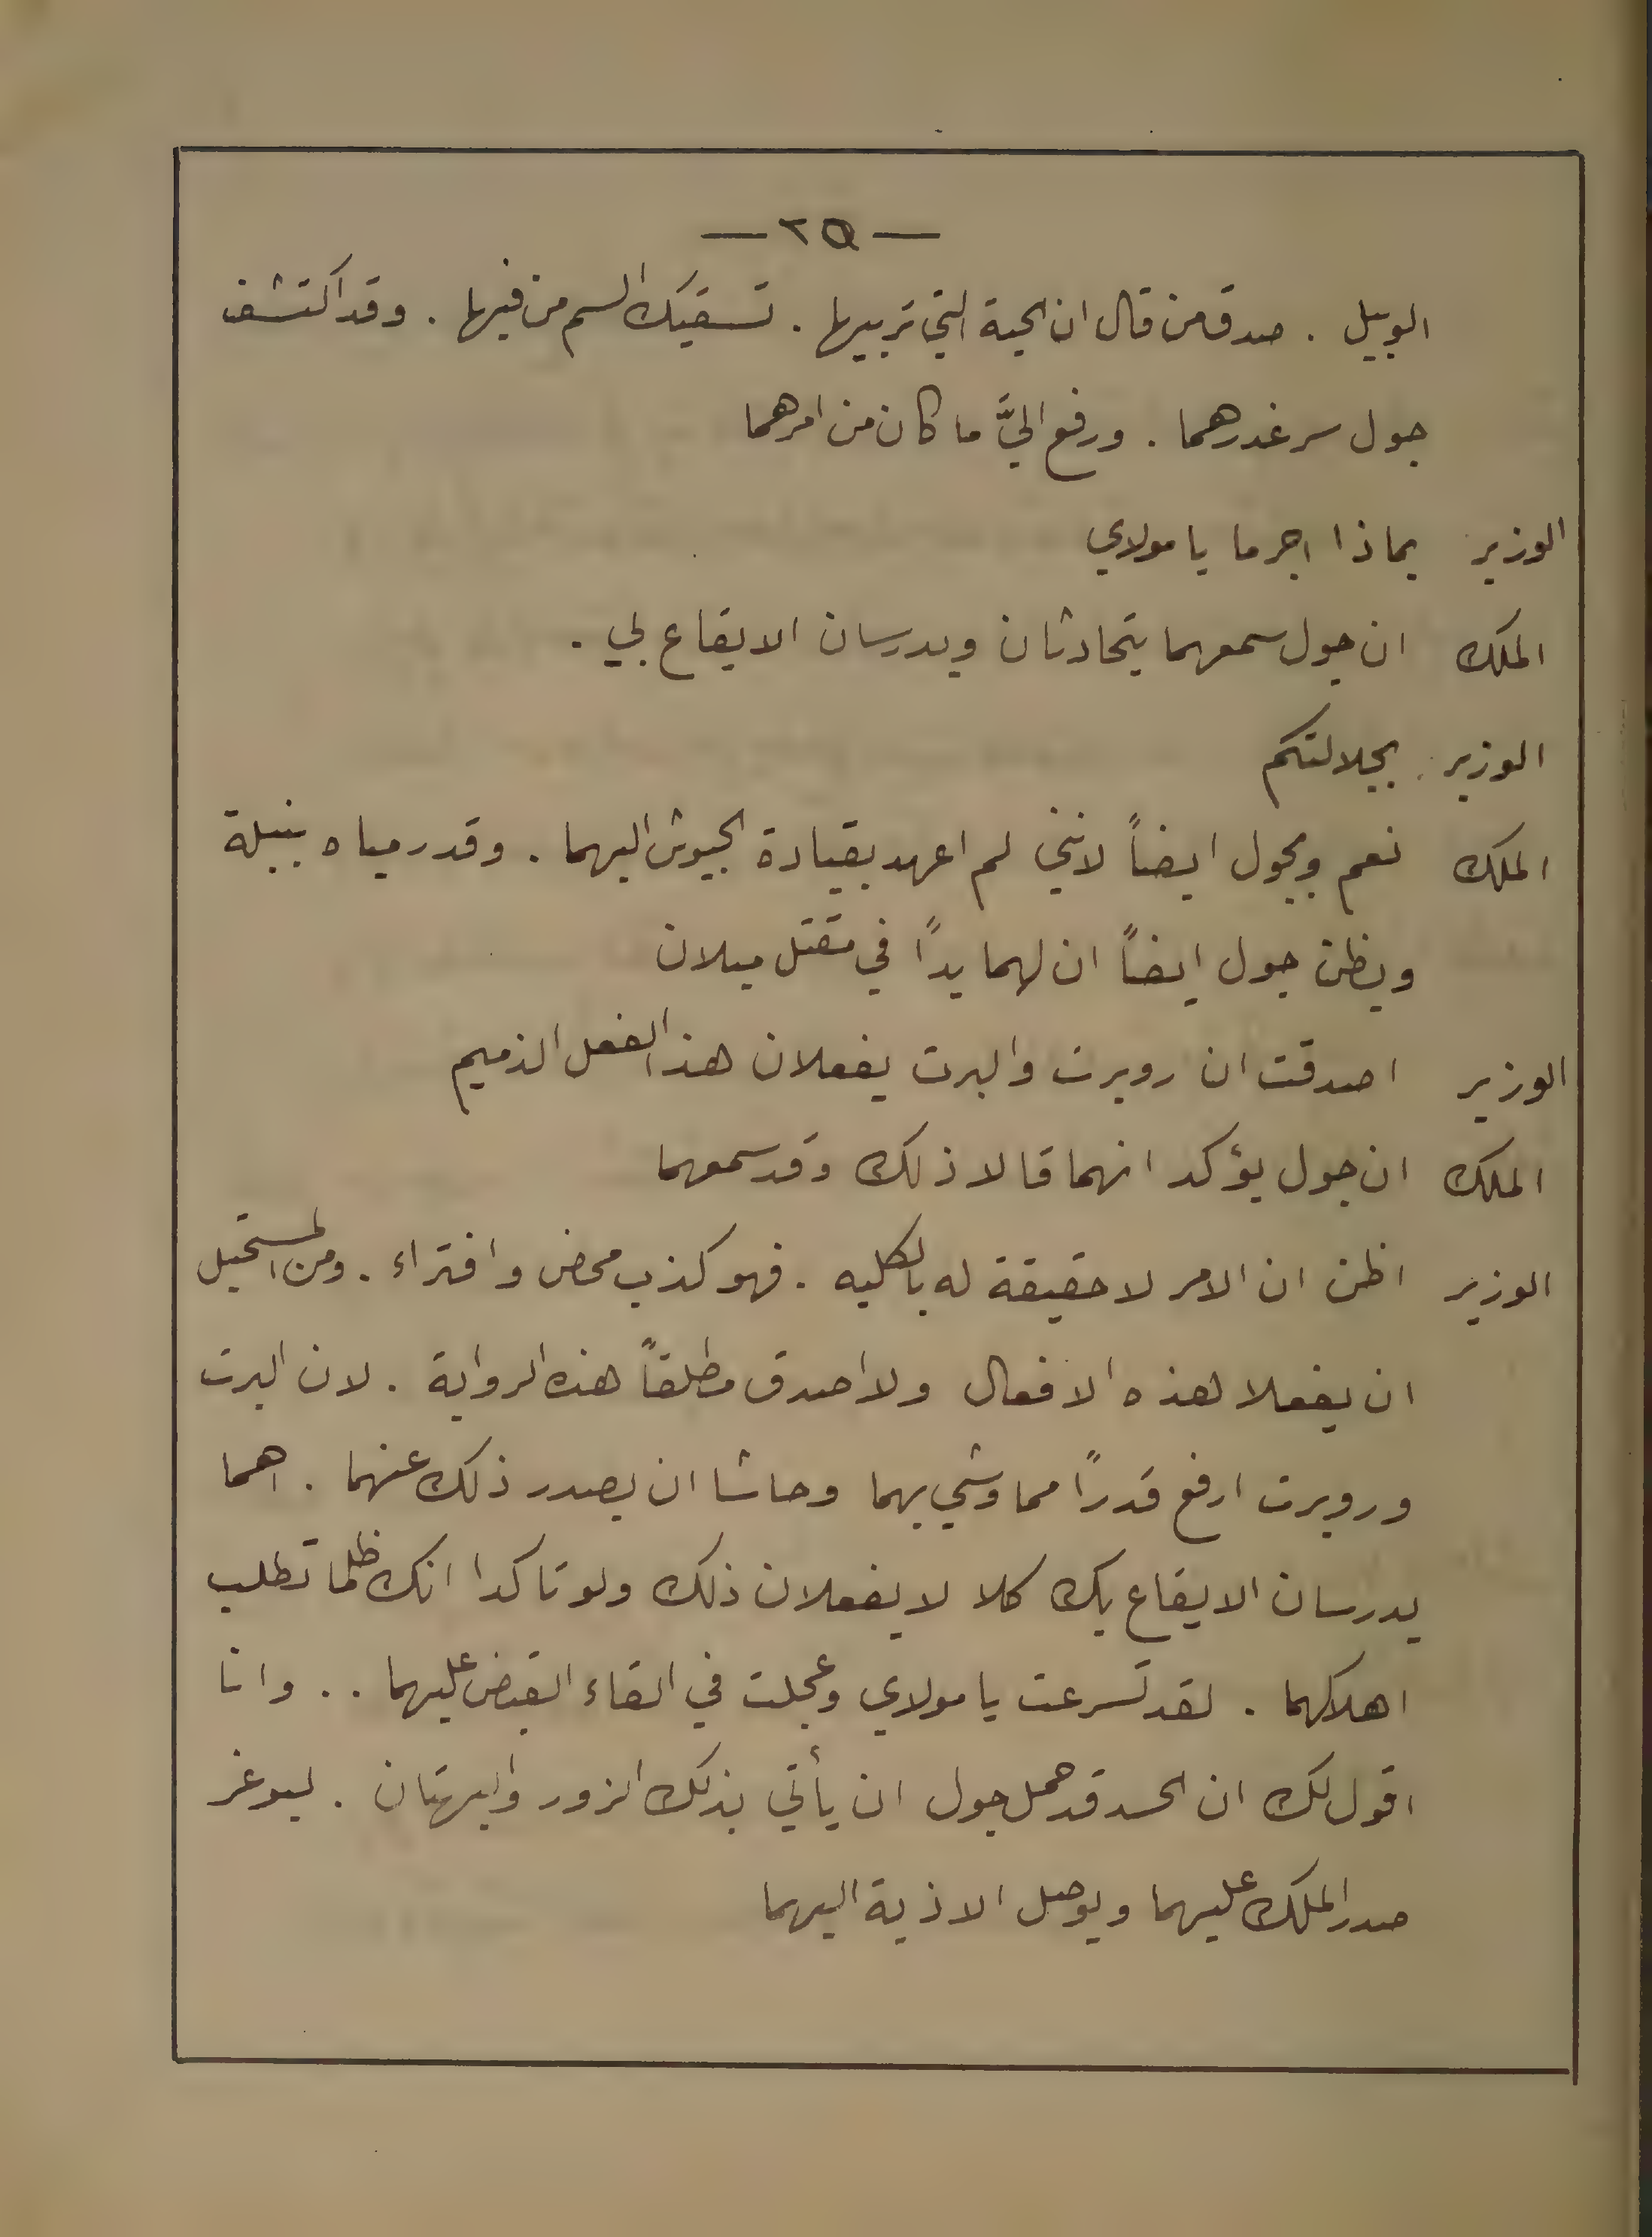 — ٢٥ —
الوبيل . صدق من قال ان الحية التي تربيها . تسقيك السم من فيها . وقد اكتشف
جول سر غدرهما . ورفع اليَّ ما كان من امرهما
الوزير بماذا اجرما يا مولاي
الملك ان جول سمعهما يتحادثان ويدرسان الايقاع بي .
الوزير بجلالتكم
الملك نعم وبجول ايضاً لانني لم اعهد بقيادة الجيوش اليهما . وقد رمياه بنبلة
ويظن جول ايضاً ان لهما يداً في مقتل ميلان
الوزير اصدقت ان روبرت والبرت يفعلان هذا الفعل الذميم
الملك ان جول يؤكد انهما قالا ذلك وقد سمعهما
الوزير اظن ان الامر لا حقيقة له بالكليه . فهو كذب محض وافتراء . ومن المستحيل
ان يفعلا هذه الافعال ولا اصدق مطلقاً هذه الرواية . لان البرت
وروبرت ارفع قدراً مما وشي بهما وحاشا ان يصدر ذلك عنهما . اهما
يدرسان الايقاع بك كلا لا يفعلان ذلك ولو تاكدا انك ظلما تطلب
اهلاكهما . لقد تسرعت يا مولاي وعجلت في القاء القبض عليهما . . وانا
اقول لك ان الحسد قد حمل جول ان يأتي بذلك الزور والبهتان . ليوغر
صدر الملك عليهما ويوصل الاذية اليهما